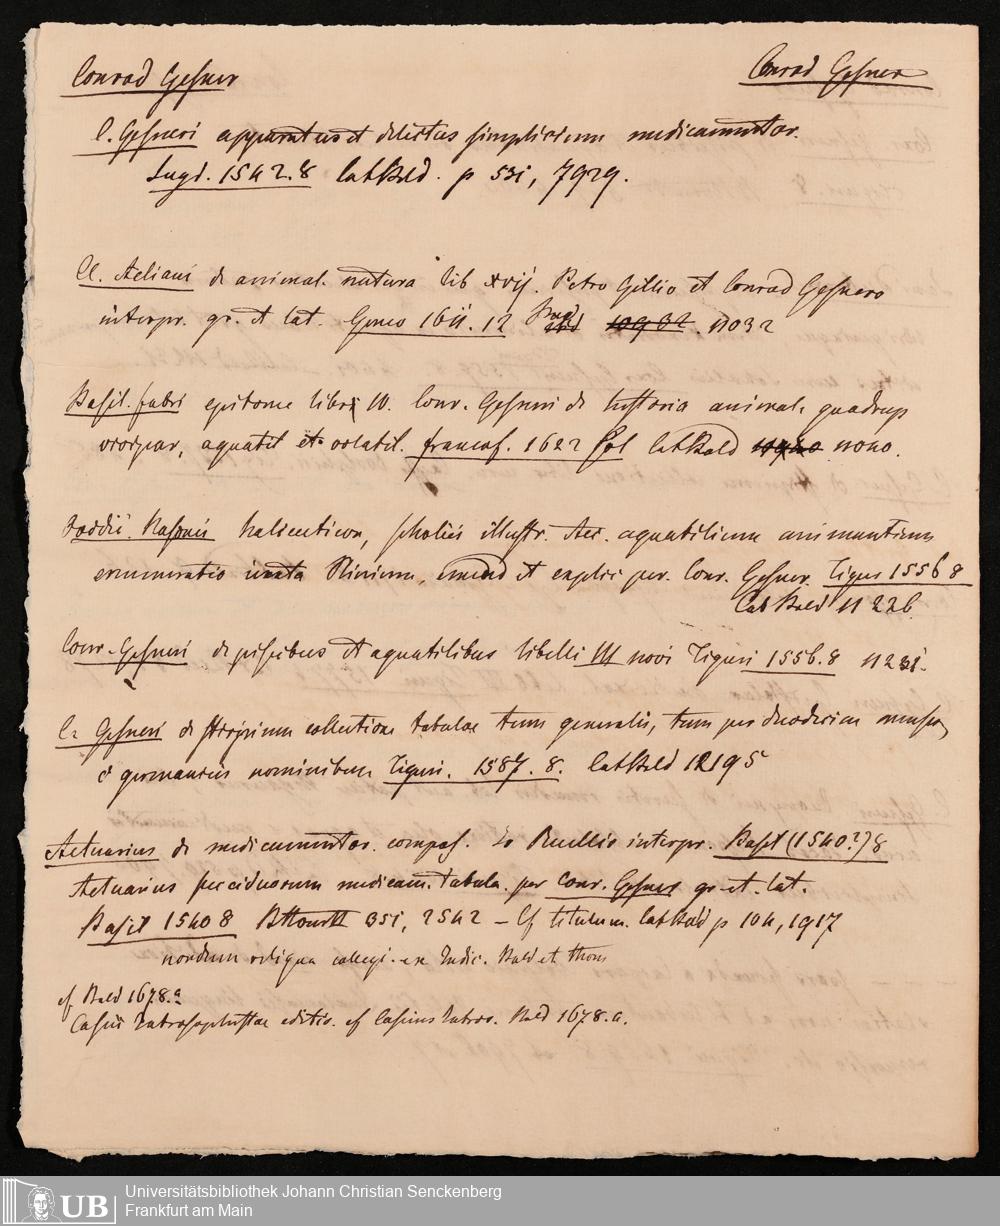 Conrad Gesner
Conrad Gesner
C. Gesneri apparatus et delectus simplicium medicamentor.
Lugd. 1542. 8 Cat Bald. p 531, 7929.
Cl. Aeliani de animal. natura lib xvij. Petro Gillio et Conrad Gesnero
interpr. gr. et lat. Genev 1611. 12 10932. 11032
Basil. fabri epitome libri IV. Conr. Gesneri de historia animal. quadrup
ovipar, aquatil et volatil. francof. 1622 fol Cat Bald 11040.
Ovidii. Nasonis halieuticon, scholiis illustr. Acc. aquatilium animantium
enumeratio iuxta Plinium, emend et explic per. Conr. Gesner. Tiguri 1556 8
Cat Bald 11226
Conr. Gesneri de piscibus et aquatilibus libelli III novi Tiguri 1556. 8 11231.
C. Gesneri de stirpium collectione tabulae tum generalis, tum per duodecim menses,
c germanicis nominibus Tiguri. 1587. 8. Cat Bald 12195
Actuarius de medicamentor. compos. Io Ruellio interpr. Basil (1540?) 8
Actuarius succiduorum medicam. tabula. per Conr. Gesner gr. et. lat.
Basil 1540 8 351, 2542 — Cf titulum. Cat Bald p 104, 1917
nondum reliqua collegi. ex Indic. Bald et
cf Bald 1678.a
Cassii Iatrosophistae editio. cf Cassius Iatros. Bald 1678. a.
Universitätsbibliothek Johann Christian Senckenberg
Frankfurt am Main
UB